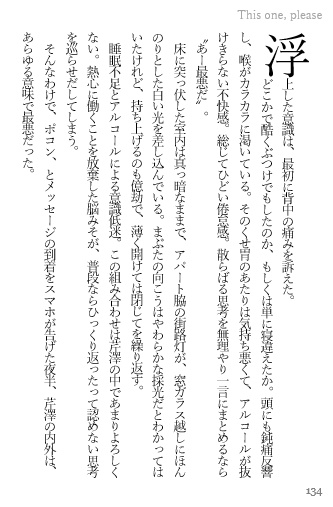 This one, please
浮上した意識は、最初に背中の痛みを訴えた。
どこかで酷くぶつけでもしたのか、もしくは単に寝違えたか。頭にも鈍痛が反響
し、喉がカラカラに渇いている。そのくせ胃のあたりは気持ち悪くて、アルコールが抜
けきらない不快感。総じてひどい倦怠感。散らばる思考を無理やり一言にまとめるなら
〝あー最悪だ〟。
床に突っ伏した室内は真っ暗なままで、アパート脇の街路灯が、窓ガラス越しにほん
のりとした白い光を差し込んでいる。まぶたの向こうはやわらかな採光だとわかっては
いたけれど、持ち上げるのも億劫で、薄く開けては閉じてを繰り返す。
睡眠不足とアルコールによる意識低迷。この組み合わせは芹澤の中であまりよろしく
ない。熱心に働くことを放棄した脳みそが、普段ならひっくり返ったって認めない思考
を巡らせだしてしまう。
そんなわけで、ポコン、とメッセージの到着をスマホが告げた夜半、芹澤の内外は、
あらゆる意味で最悪だった。
134